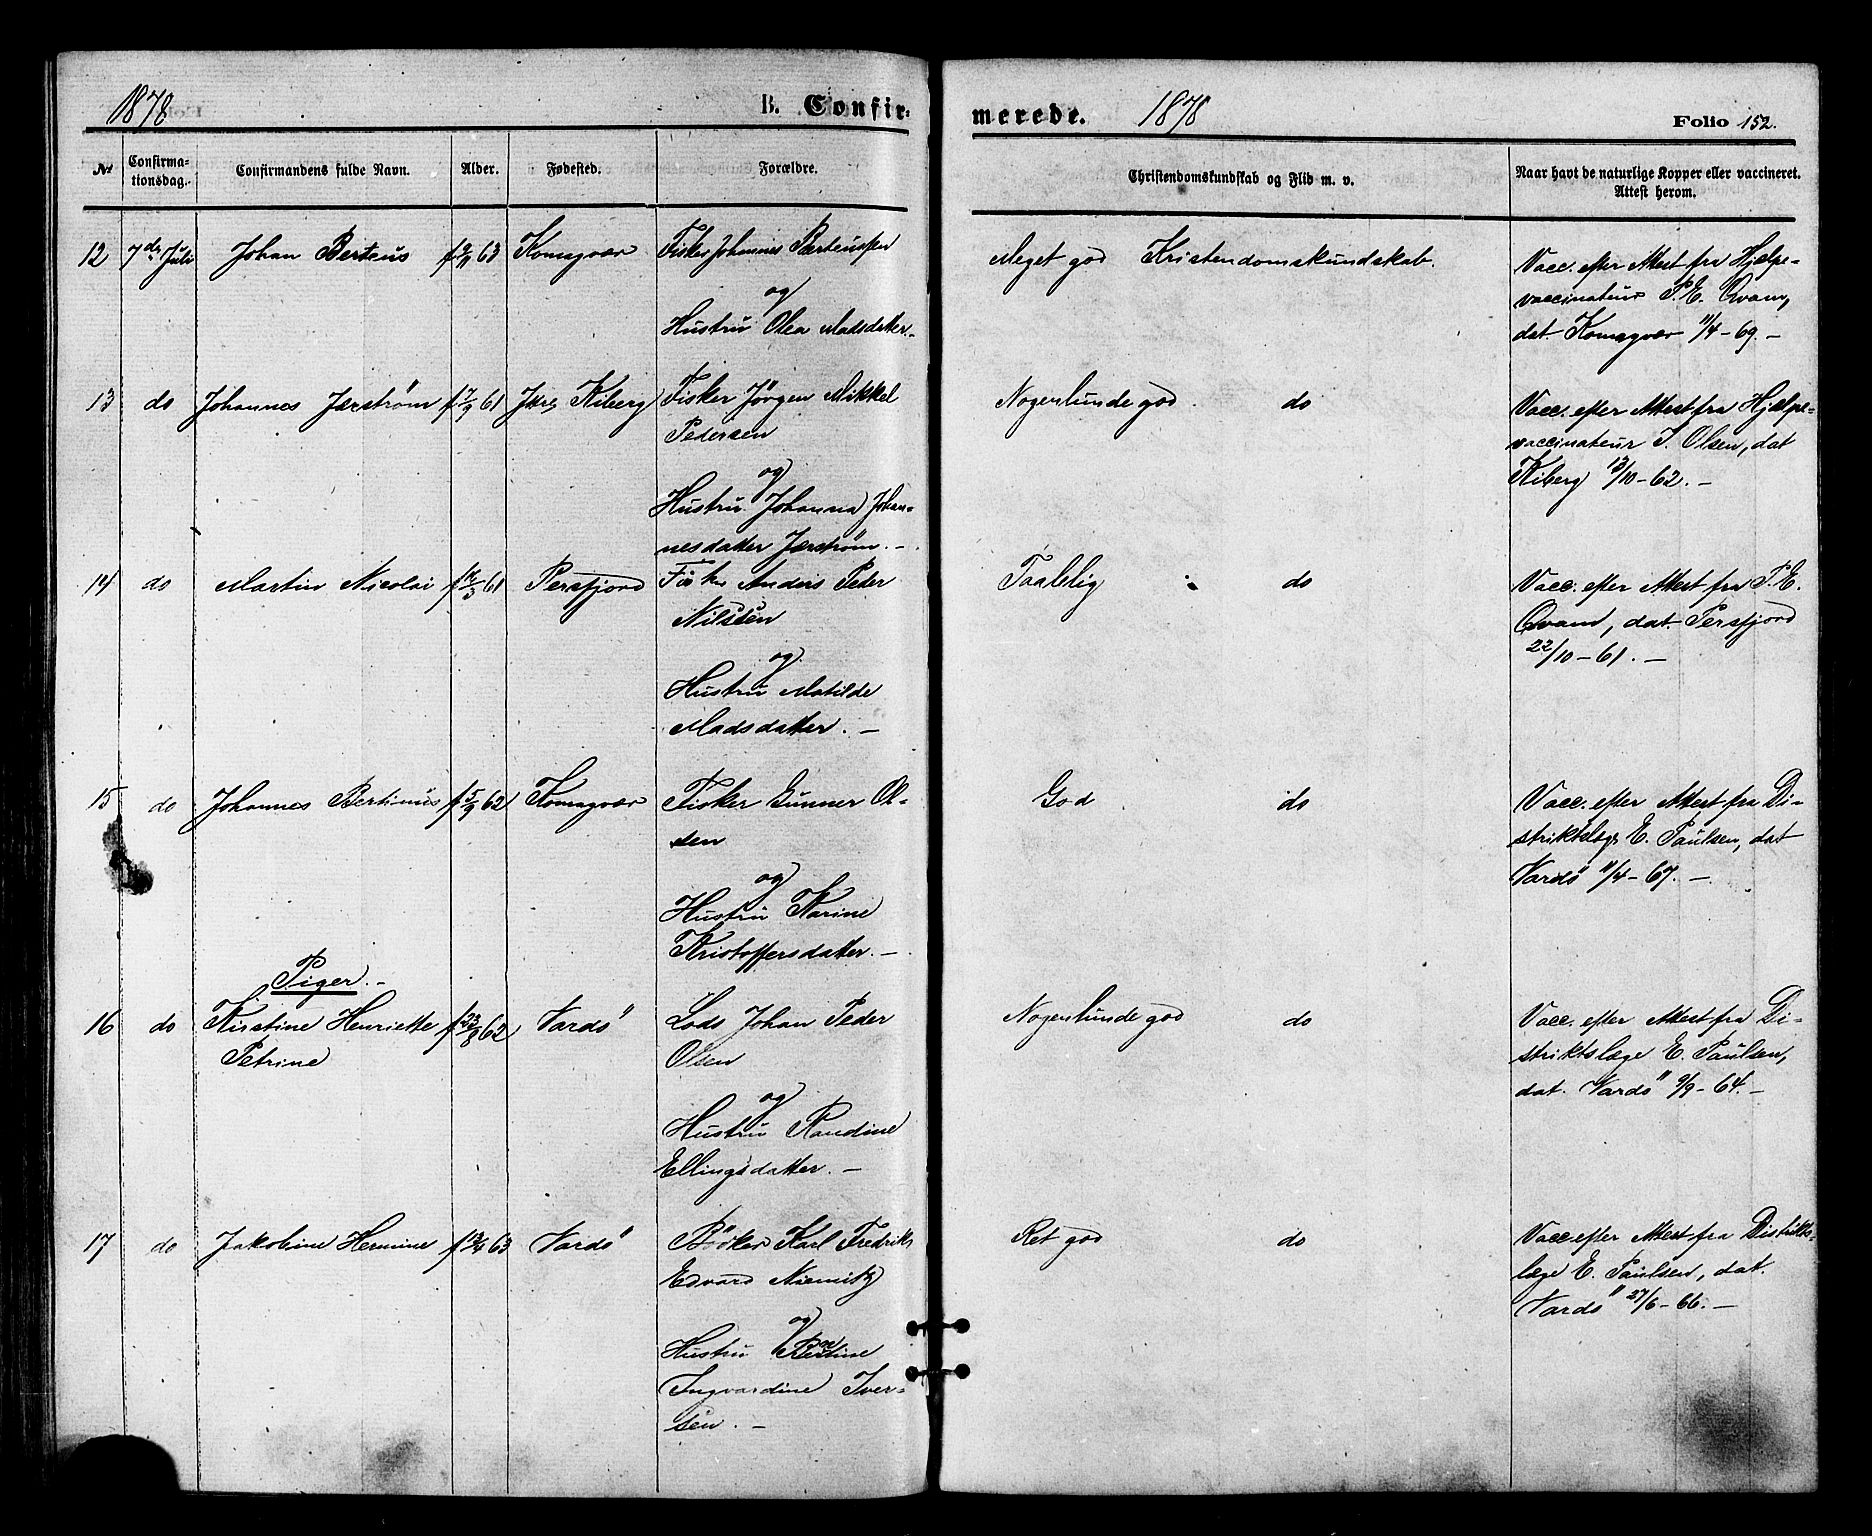 1878 B. Confir-
merede. 1878 Folio 152.
№ Confirma-
tionsdag. Confirmandens fulde Navn. Alder. Fødested. Forældre.
Christendomskundskab og Flid m. v. Naar havt de naturlige Kopper eller vaccineret.
Attest herom.
12 7de Juli Johan Berteus 63 Komagvær Fisker Johannes Berteussen
og
Hustru Olea Madsdatter.
Meget god Kristendomskundskab.
Vacc. efter Attest fra Hjælpe-
vaccinateur P. E. Qvam,
dat. Komagvær 11/4-69.-
13 do Johannes Jerstrøm 61 Kiberg Fisker Jørgen Mikkel
Pedersen
og
Hustru Johanna Johan-
nesdatter Jerstrøm.-
Nogenlunde god. do
Vacc. efter Attest fra Hjælpe-
vaccinateur I. Olsen, dat
Kiberg 13/10-62.-
14 do Martin Nicolai 61 Persfjord Fisker Anders Peder
Nilssen
og
Hustru Matilde
Madsdatter.-
Taalelig do
Vacc. efter Attest fra P. E.
Qvam, dat. Persfjord
22/10-61.-
15 do Johannes Bertinus f 5/9 62 Komagvær Fisker Gunner Ol-
sen
og
Hustru Karine
Kristoffersdatter.-
God do
Vacc. efter Attest fra Di-
striktslæge E. Paulsen, dat
Vardö 11/4-67.-
Piger.-
16 do Kirstine Henriette f 23/8 62 Vardö Lods Johan Peder
Petrine Olsen
og
Hustru Randine
Ellingsdatter.-
Nogenlunde god do
Vacc. efter Attest fra Di-
striktslæge E. Paulsen,
dat. Vardö 9/9-64.-
17 do Jakobine Hermine 63 Vardö Bøker Karl Fredrik
Edvard Niemitz
og
Hustru
Ingvardine Iver-
sen.-
Ret god do
Vacc. efter Attest fra Distrikts-
læge E. Paulsen, dat.
Vardö 27/6-66.-